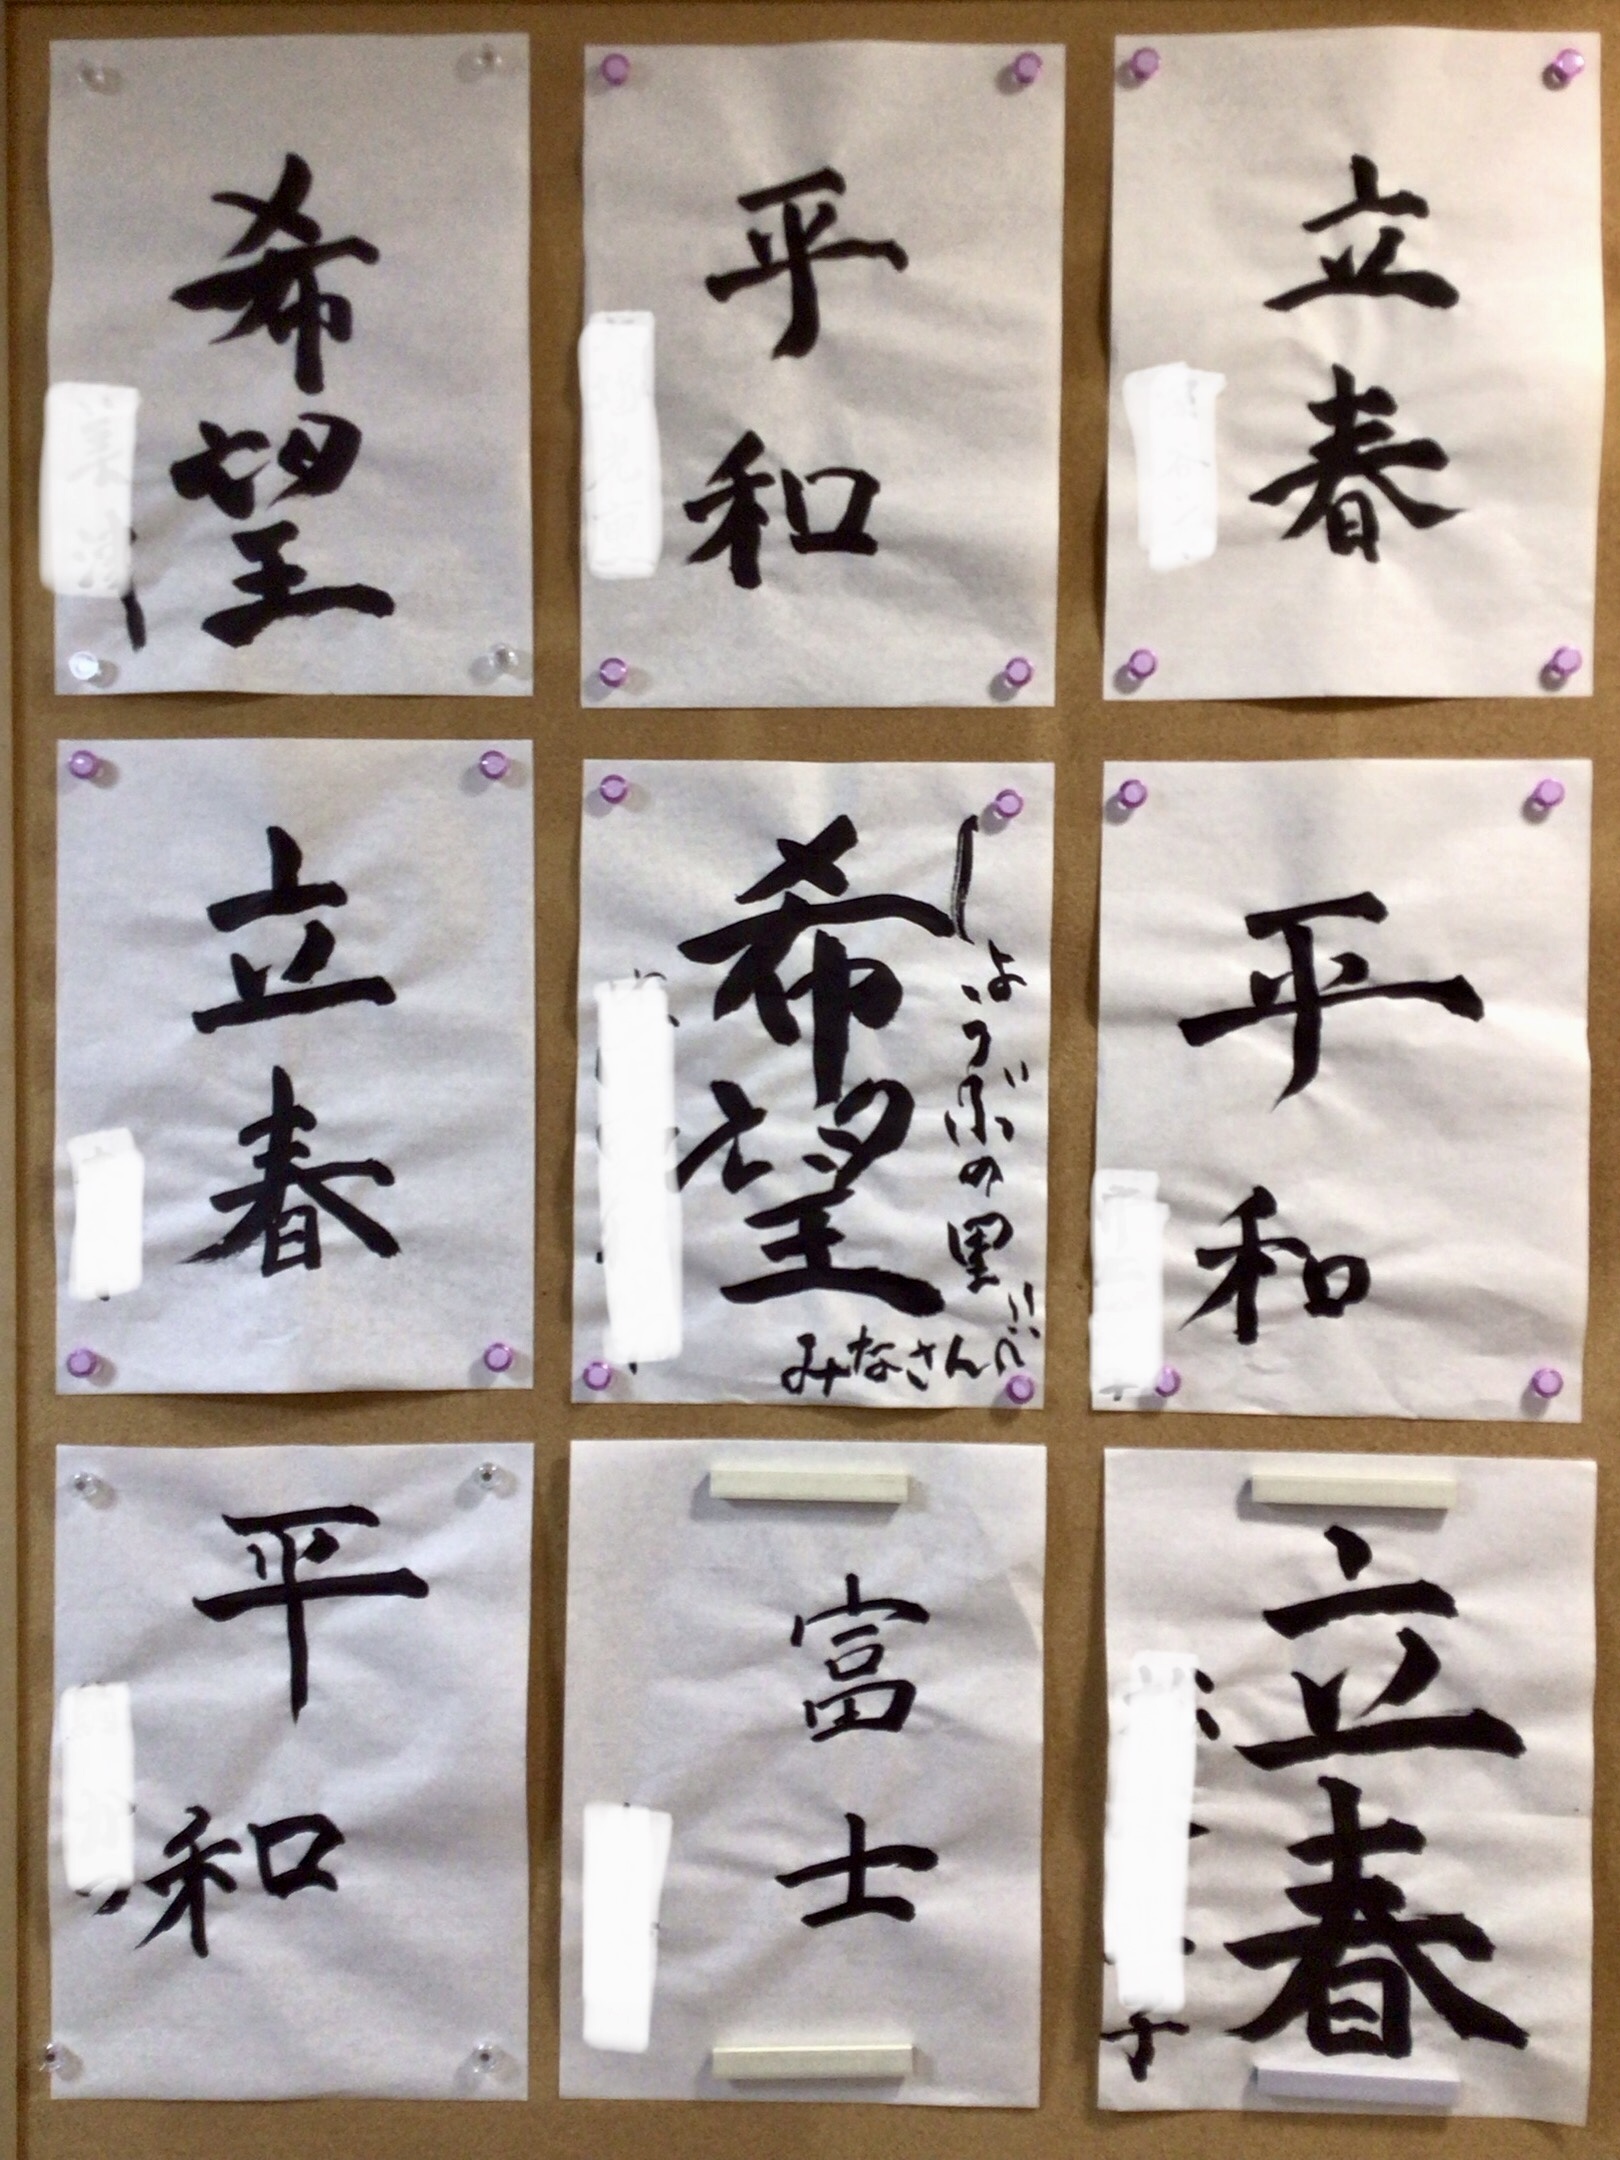 希望
平和
立春
立春
しょうぶの里
みなさんへ!!
希望
平和
平和
富士
立春
子